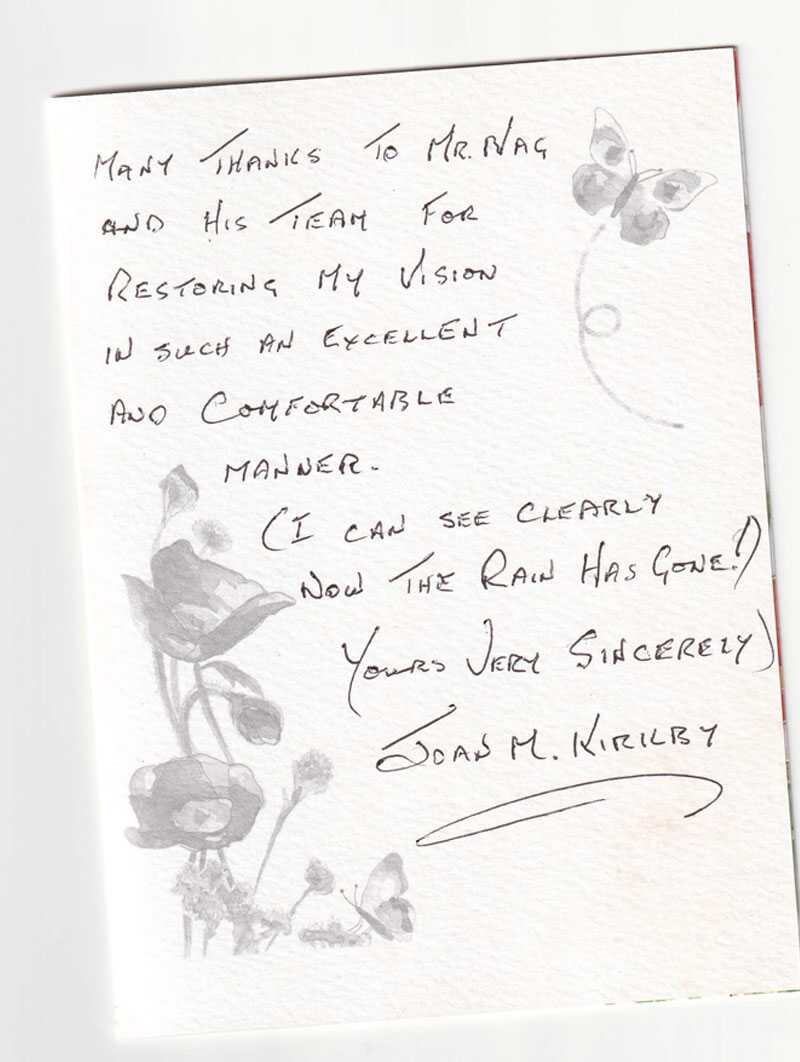 MANY THANKS TO MR. NAG
AND HIS TEAM FOR
RESTORING MY VISION
IN SUCH AN EXCELLENT
AND COMFORTABLE
MANNER.
(I CAN SEE CLEARLY
NOW THE RAIN HAS GONE!)
YOURS VERY SINCERELY)
JOAN M. KIRKBY